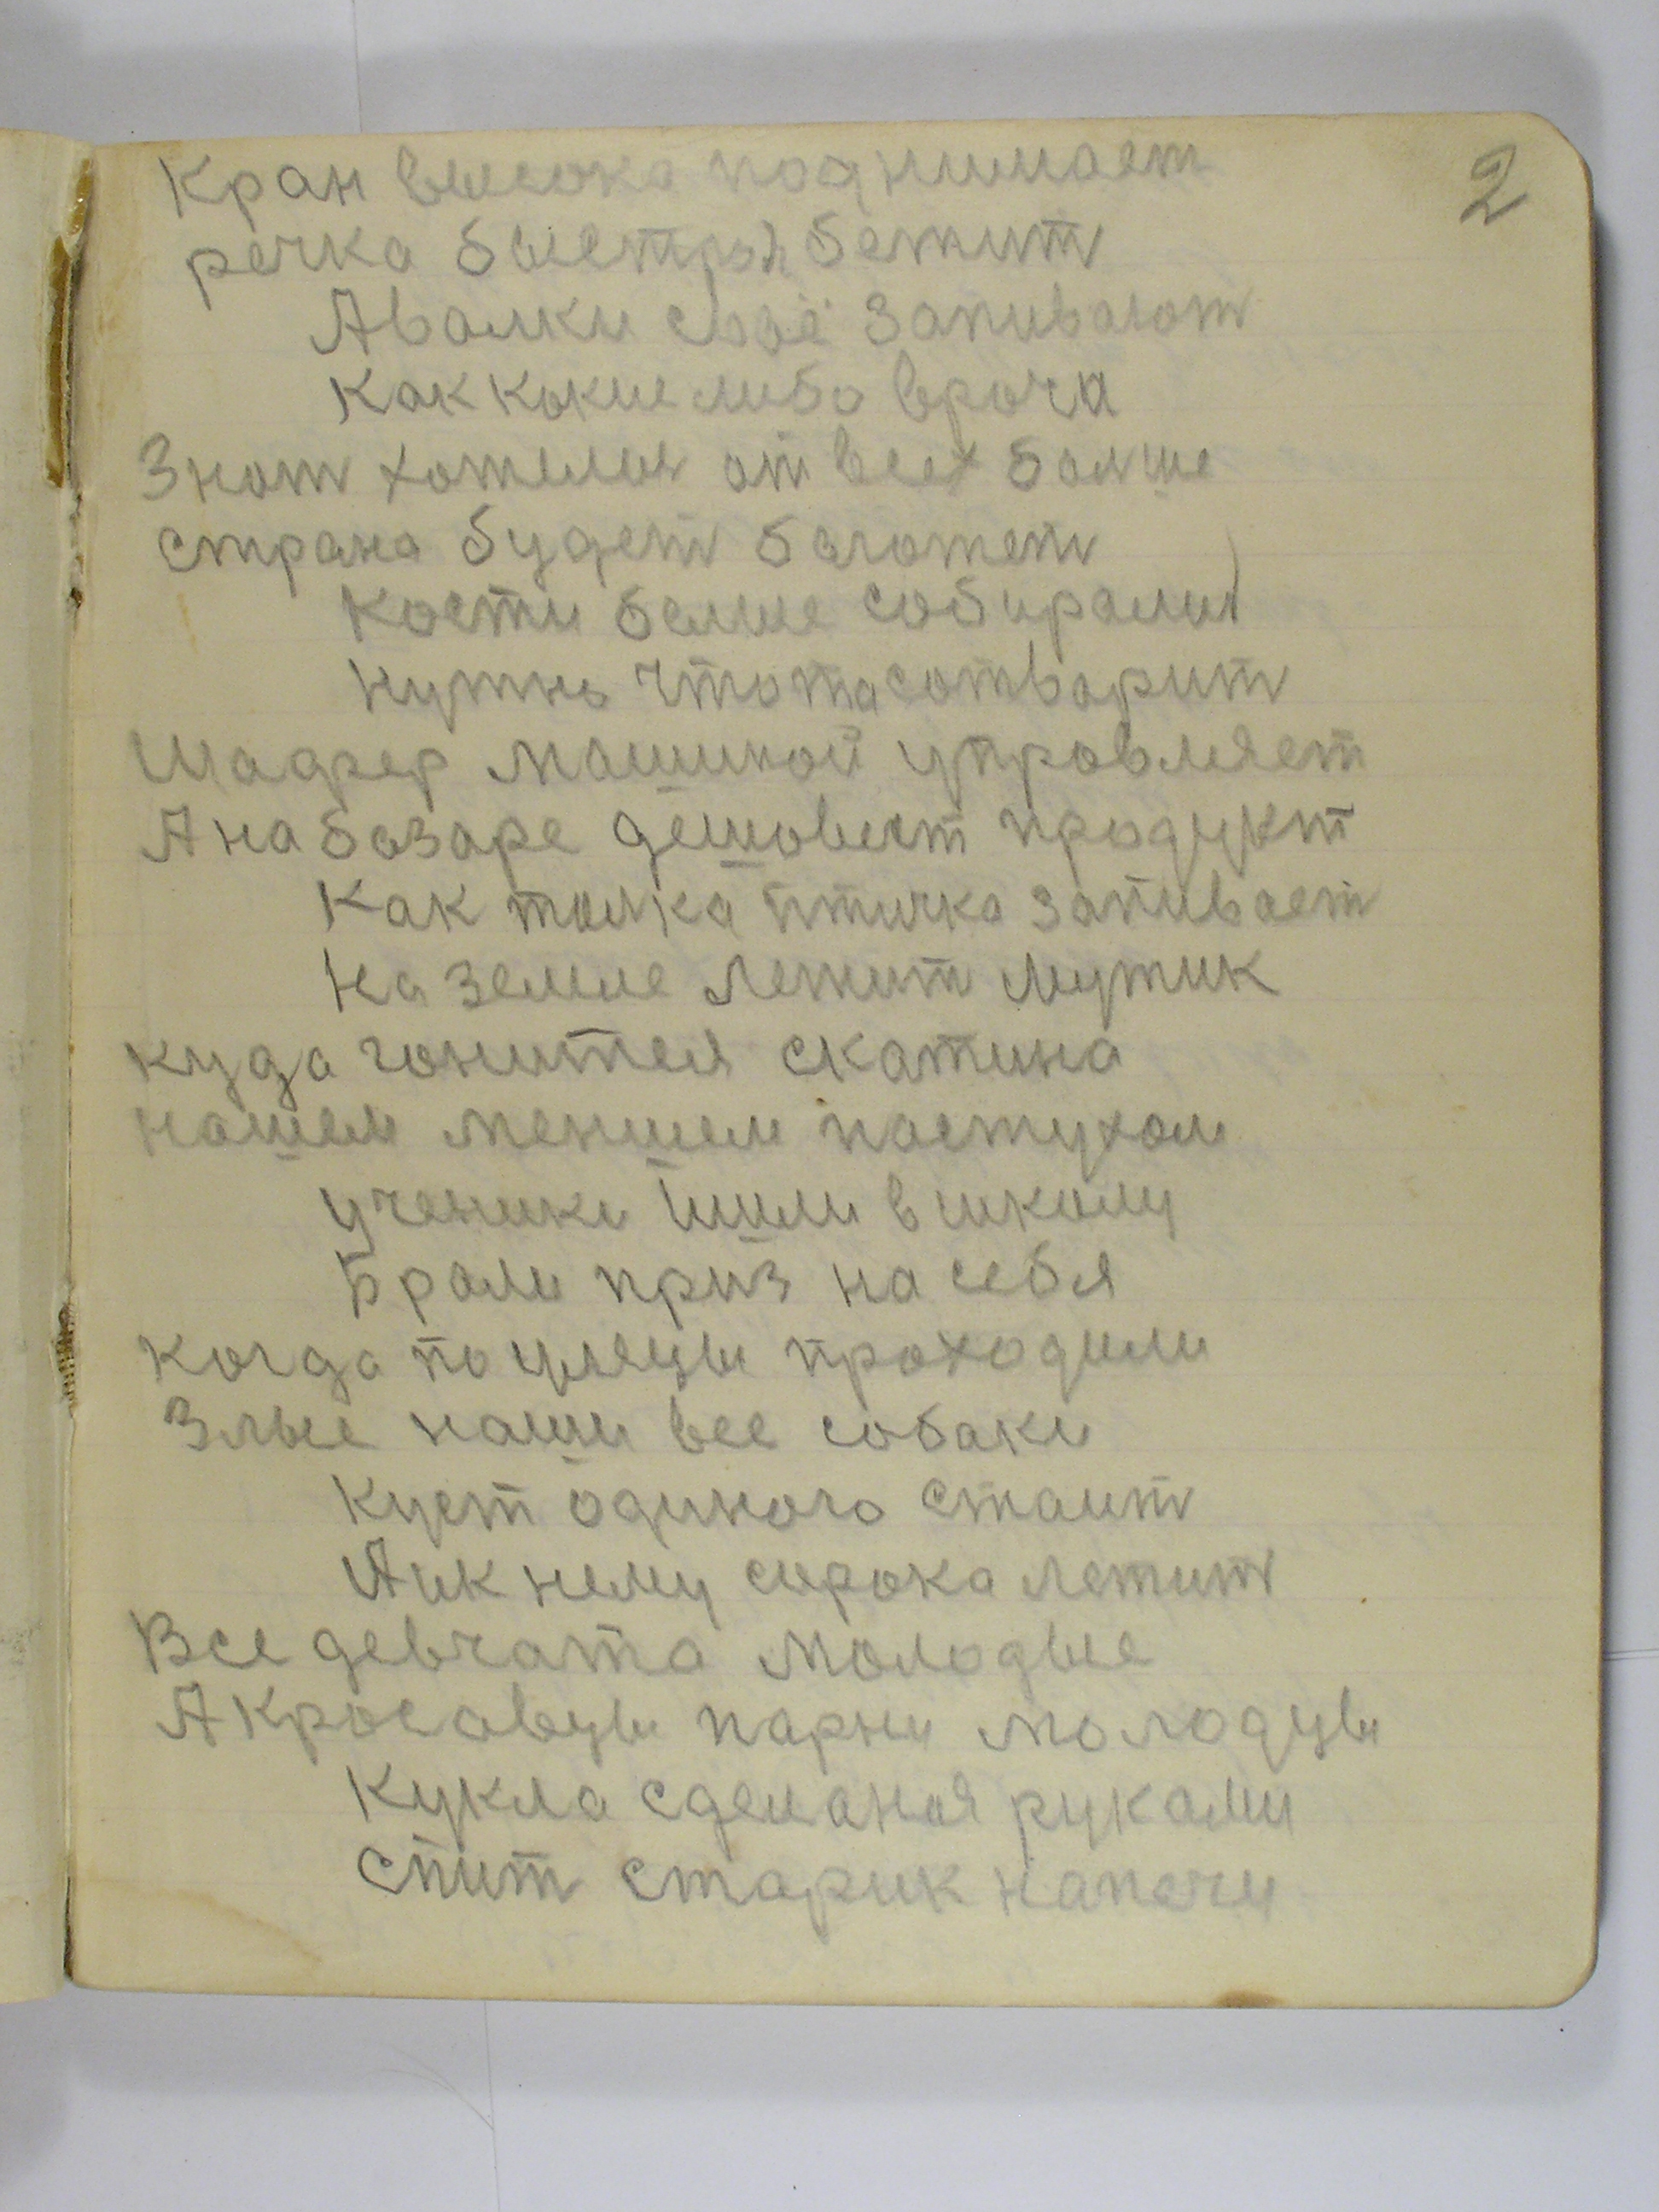 2
Кран высока поднимает
речка быстрая бежит
Аволки своё запивают
Как кокие либо врачи
Знат хотелия от всех болше
страна будет богатет
Кости белые собирались
нужно что то сотварит
Шафер машиной управляет
А на базаре дешовеит продукт
Как толка птичка запивает
На земле лежит мужик
куда гонится скатина
нашем меншем пастухом
ученики йшли в школу
Брали приз на себя
когда по улецы проходили
Злые наши все собаки
Куст одиного стаит
Аик нему сорока летит
Все девчата молодые
А кросавцы парни молодцы
Кукла сделаная руками
Спит старик напечи